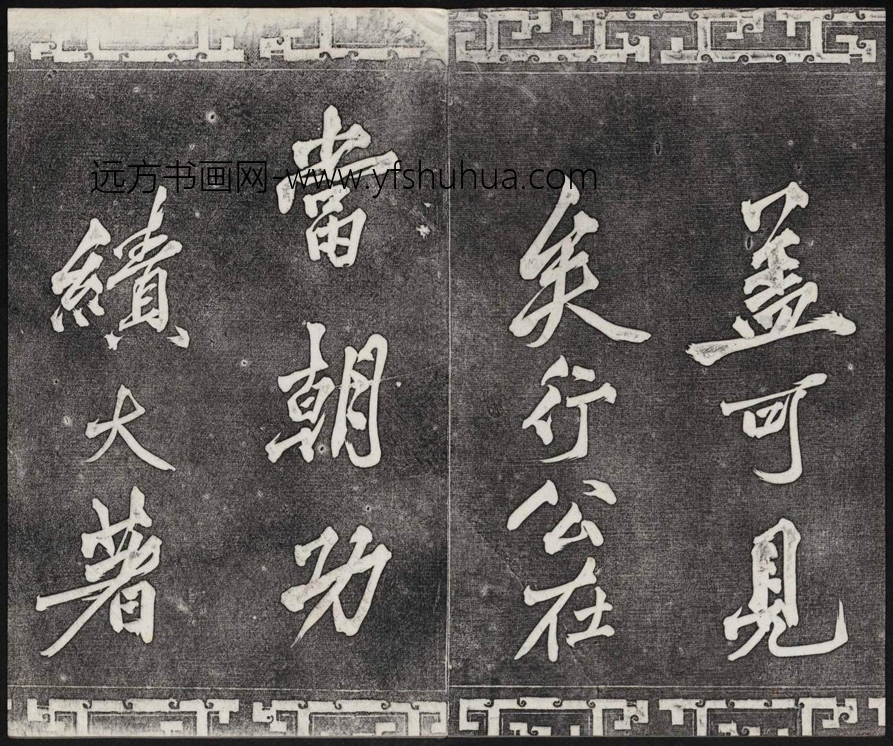 盖可見
矣行公在
當朝功
績大著
远方书画网-www.yfshuhua.com